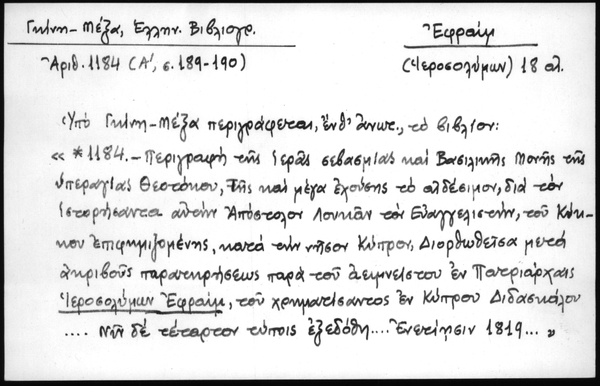 Γκίνη-Μέξα, Ἑλλην. Βιβλιογρ.
Ἐφραίμ
Ἀριθ. 1184 (Α', σ. 189-190)
(Ἱεροσολύμων) 18 αἰ.
Ὑπό Γκίνη-Μέξα περιγράφεται, ἔνθ' ἀνωτ., τό βιβλίον:
« *1184.- Περιγραφή τῆς ἱερᾶς σεβασμίας καί Βασιλικῆς Μονῆς τῆς
ὑπεραγίας Θεοτόκου, τῆς καί μέγα ἐχούσης τό αἰδέσιμον, διά τόν
ἱστορήσαντα αὐτήν Ἀπόστολον Λουκᾶν τόν Εὐαγγελιστήν, τοῦ Κύκ-
κου ἐπιφημιζομένης, κατά τήν νῆσον Κύπρον, Διορθωθεῖσα μετά
ἀκριβοῦς παρατηρήσεως παρά τοῦ ἀειμνήστου ἐν Πατριάρχαις
Ἱεροσολύμων Ἐφραίμ, τοῦ χρηματίσαντος ἐν Κύπρου Διδασκάλου
.... Νῦν δέ τέταρτον τύποις ἐξεδόθη.... Ἐνετίησιν 1819... »